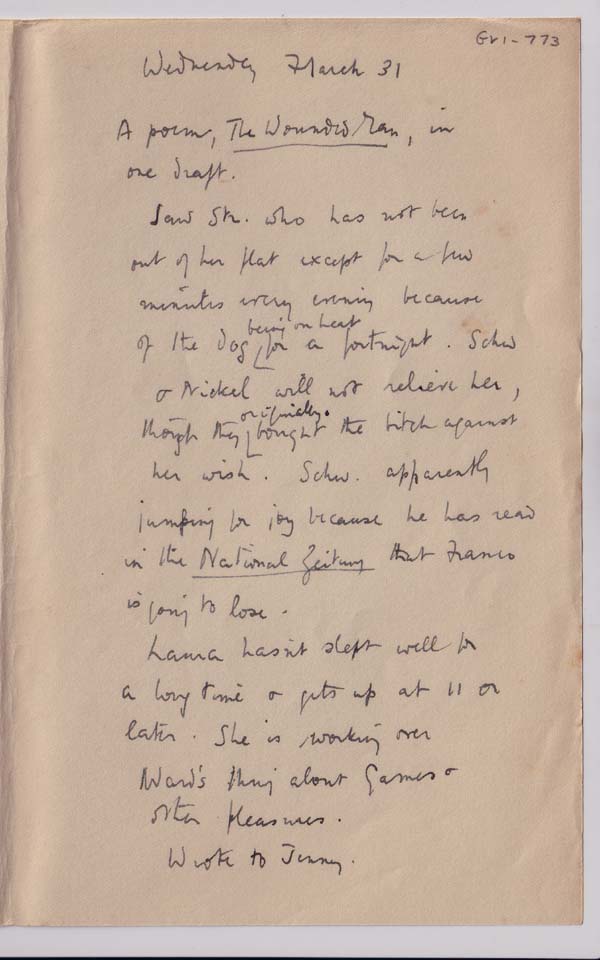 GV1-773
Wednesday March 31
A poem, The Wounded Man, in
one draft.
Saw Str. who has not been
out of her flat except for a few
minutes every evening because
of the dog being on heat for a fortnight. Schw
& Nickel will not relieve her,
though they originally bought the bitch against
her wish. Schw. apparently
jumping for joy because he has read
in the National Zeitung that Franco
is going to lose.
Laura hasn't slept well for
a long time & gets up at 11 or
later. She is working over
Ward's thing about Games &
other pleasures.
Wrote to Jenny.